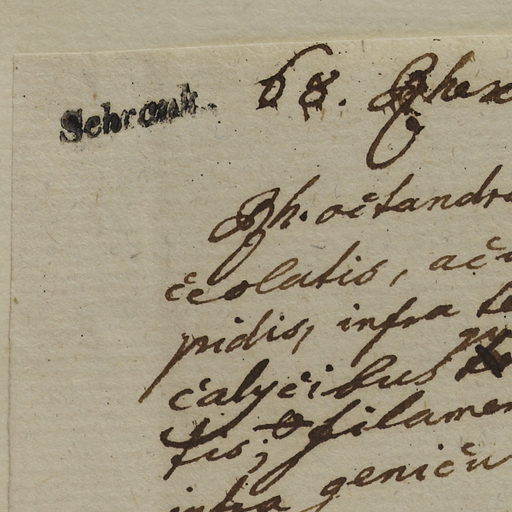 Schrank.
68. Phex
Ph. octandr
ceolatis, acu
pidis, infra
calycibus
tis; & filamen
infra genicu